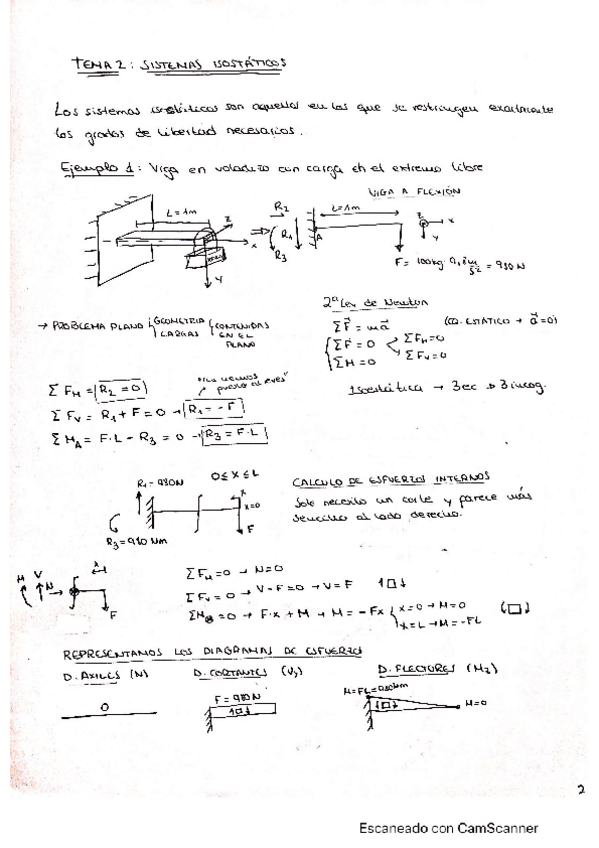 TEMA 2: SISTEMAS ISOSTÁTICOS
Los sistemas isostáticos son aquellos en los que se restringen exactamente
los grados de libertad necesarios.
Ejemplo 1: Viga en voladizo con carga en el extremo libre
VIGA A FLEXIÓN
L=1m
z
x
y
R2
R1
R3
L=1m
A
z
x
y
F= 100kg · 9,8 m/s² = 980 N
→ PROBLEMA PLANO { GEOMETRÍA CARGAS { CONTENIDAS EN EL PLANO
2ª Ley de Newton
ΣF = ma (EQ. ESTÁTICO → a=0)
ΣF = 0 ΣFH=0
ΣM = 0 ΣFV=0
Isostática → 3 ec → 3 incog.
"Lo vemos puesto al revés"
Σ FH = R2 = 0
Σ FV = R1 + F = 0 → R1 = - F
Σ MA = F·L - R3 = 0 → R3 = F·L
R1 = 980N
0 ≤ x ≤ L
x
x=0
F
R3 = 980 Nm
CALCULO DE ESFUERZOS INTERNOS
Solo necesito un corte y parece más
sencillo al lado derecho.
M V N
x
F
Σ FH = 0 → N=0
Σ FV = 0 → V - F = 0 → V = F
ΣM = 0 → F·x + M → M = - Fx { x=0 → M=0
x=L → M=-FL
REPRESENTAMOS LOS DIAGRAMAS DE ESFUERZO
D. AXILES (N) D. CORTANTES (Vy) D. FLECTORES (Mz)
0
F = 980 N
M=FL=980Nm
M=0
2
Escaneado con CamScanner